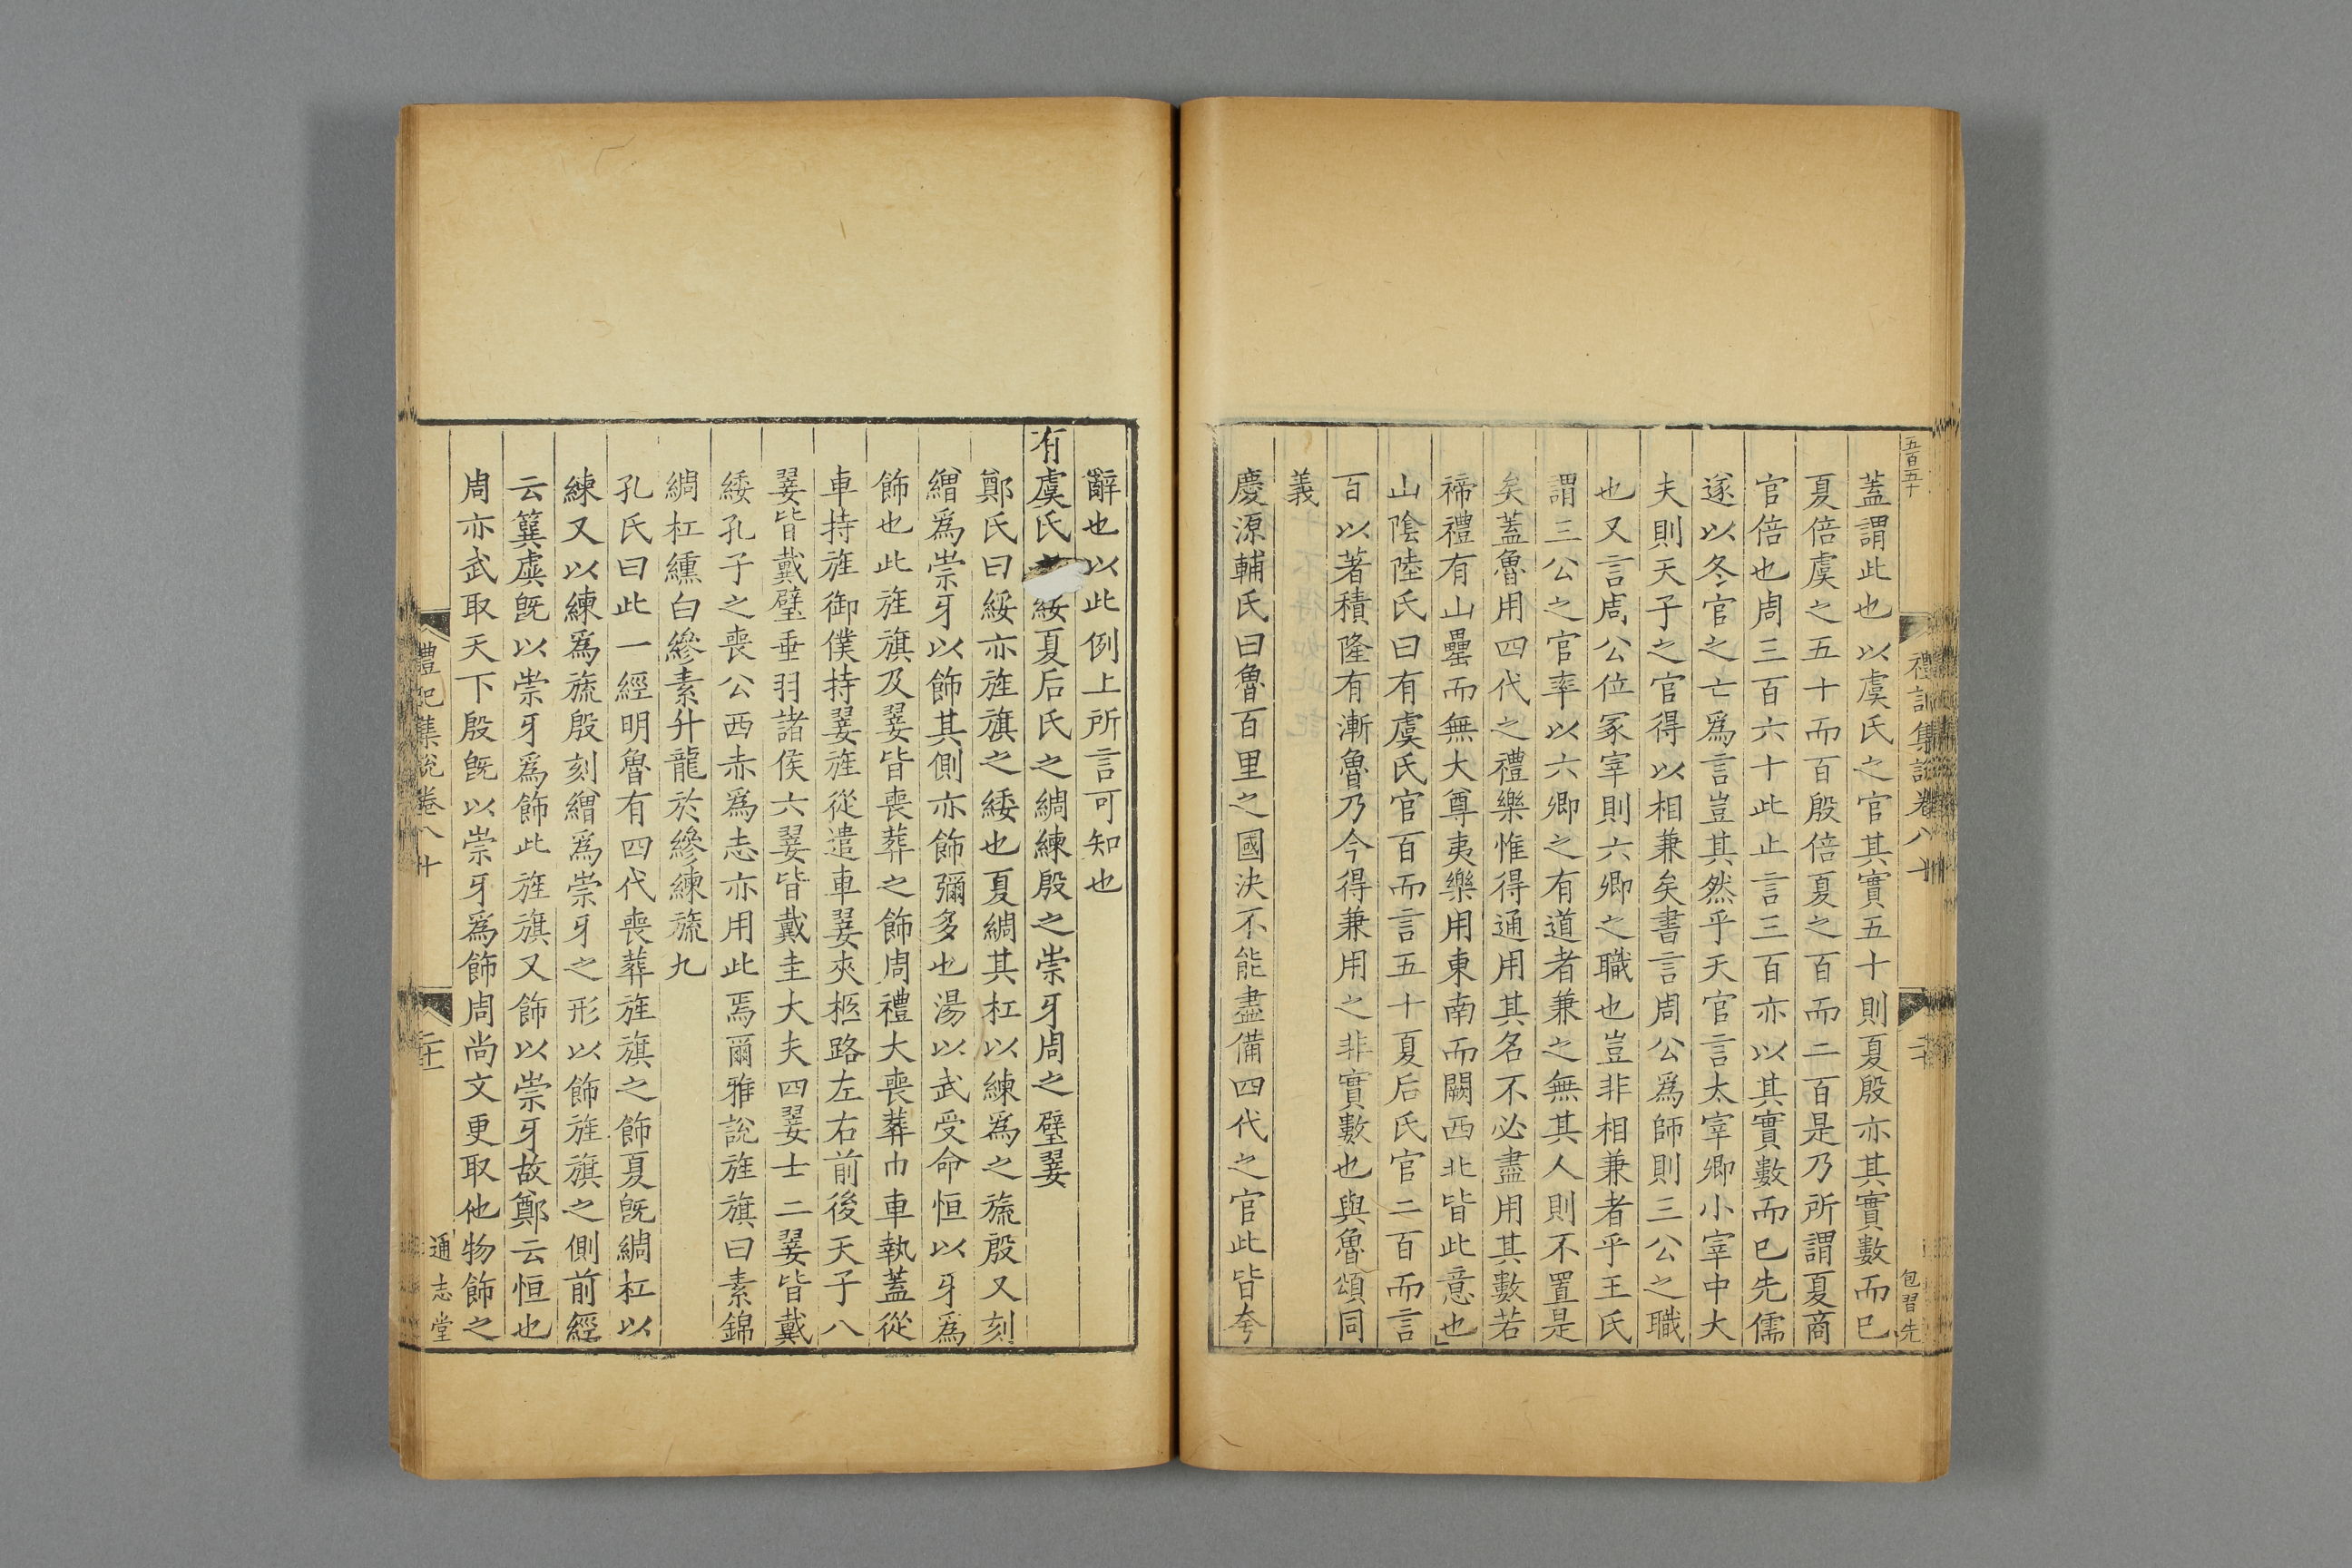 五百五十
禮記集說卷八十
二十
包習先
蓋謂此也以虞氏之官其實五十則夏殷亦其實數而已
夏倍虞之五十而百殷倍夏之百而二百是乃所謂夏商
官倍也周三百六十此止言三百亦以其實數而已先儒
遂以冬官之亡爲言豈其然乎天官言太宰卿小宰中大
夫則天子之官得以相兼矣書言周公爲師則三公之職
也又言周公位冢宰則六卿之職也豈非相兼者乎王氏
謂三公之官率以六卿之有道者兼之無其人則不置是
矣蓋魯用四代之禮樂惟得通用其名不必盡用其數若
禘禮有山罍而無大尊夷樂用東南而闕西北皆此意也
山陰陸氏曰有虞氏官百而言五十夏后氏官二百而言
百以著積隆有漸魯乃今得兼用之非實數也與魯頌同
義
慶源輔氏曰魯百里之國決不能盡備四代之官此皆夸
辭也以此例上所言可知也
有虞氏綏夏后氏之綢練殷之崇牙周之璧翣
鄭氏曰綏亦旌旗之緌也夏綢其杠以練爲之旒殷又刻
繒爲崇牙以飾其側亦飾彌多也湯以武受命恒以牙爲
飾也此旌旗及翣皆喪葬之飾周禮大喪葬巾車執蓋從
車持旌御僕持翣旌從遣車翣夾柩路左右前後天子八
翣皆戴璧垂羽諸侯六翣皆戴圭大夫四翣士二翣皆戴
緌孔子之喪公西赤爲志亦用此焉爾雅說旌旗曰素錦
綢杠纁白縿素升龍於縿練旒九
孔氏曰此一經明魯有四代喪葬旌旗之飾夏旣綢杠以
練又以練爲旒殷刻繒爲崇牙之形以飾旌旗之側前經
云簨虡旣以崇牙爲飾此旌旗又飾以崇牙故鄭云恒也
周亦武取天下殷旣以崇牙爲飾周尚文更取他物飾之
禮記集說卷八十
二十一
通志堂